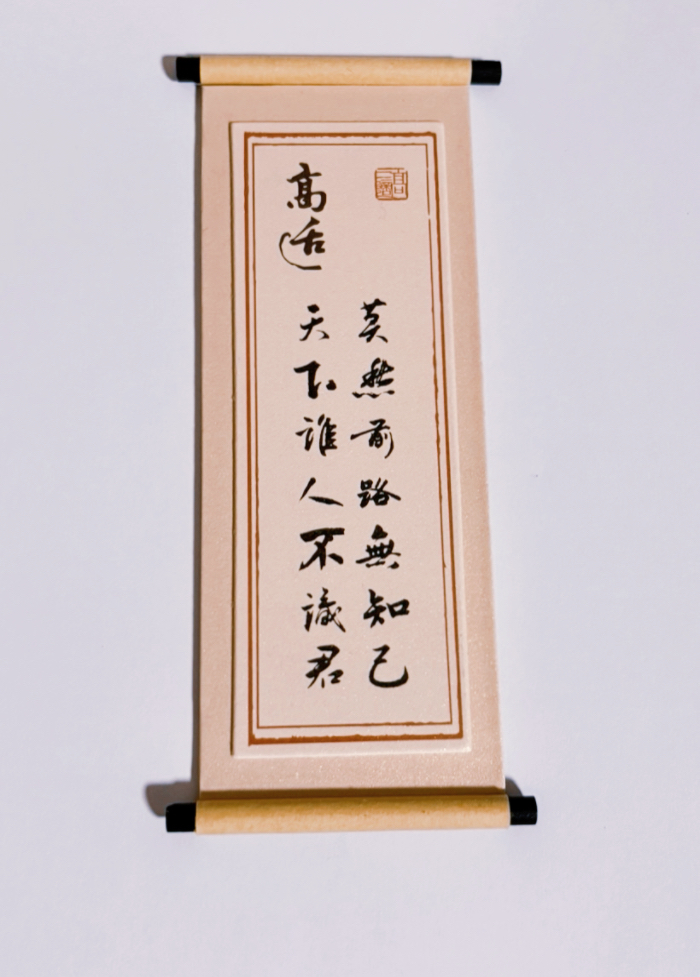 莫愁前路無知己
天下誰人不識君
高適